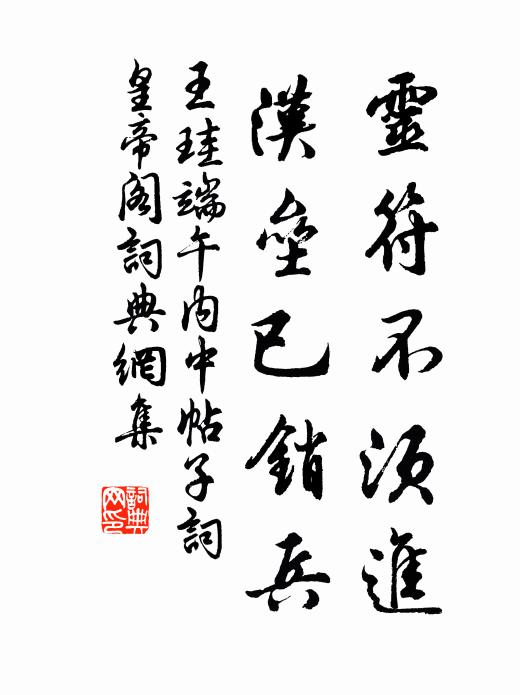 靈符不須進
漢壘已銷兵
王珪端午內中帖子詞
皇帝閣詞典網集
詞典
网印